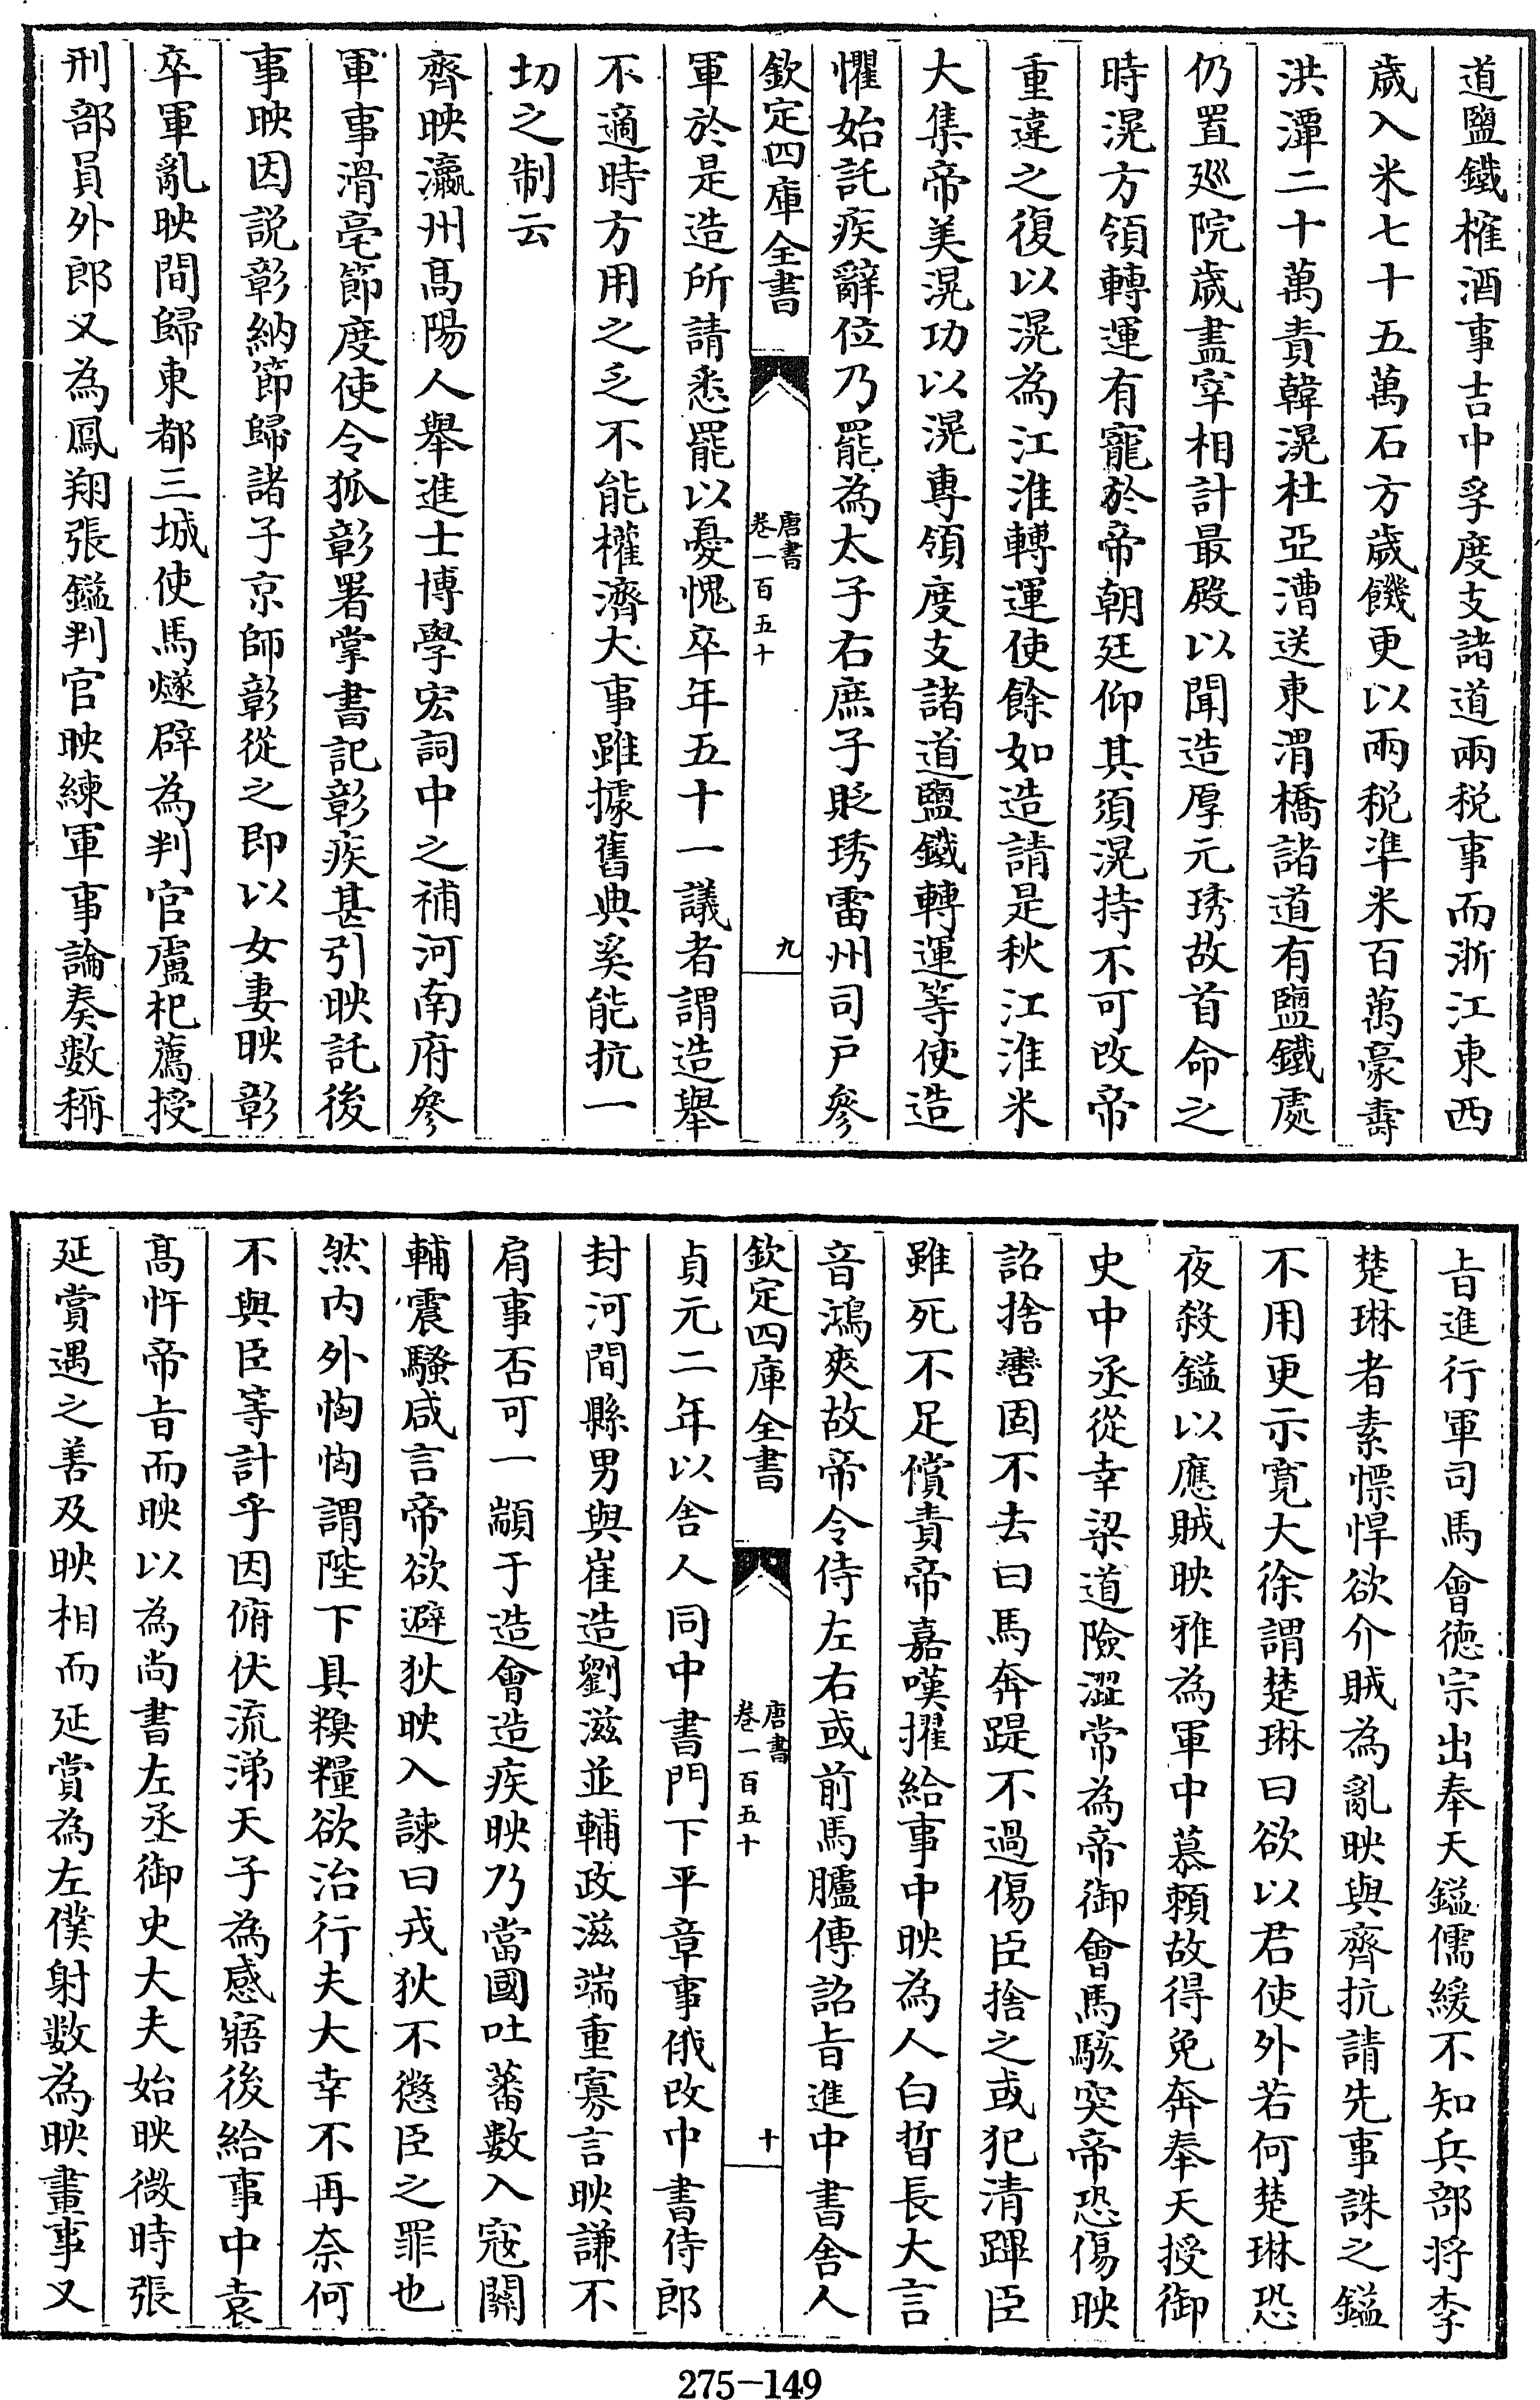 道鹽鐵榷酒事吉中孚度支諸道兩税事而浙江東西
歲入米七十五萬石方歲饑更以兩税準米百萬豪壽
洪潭二十萬責韓滉杜亞漕送東渭橋諸道有鹽鐵處
仍置廵院歲盡宰相計最殿以聞造厚元琇故首命之
時滉方領轉運有寵於帝朝廷仰其須滉持不可改帝
重違之復以滉為江淮轉運使餘如造請是秋江淮米
大集帝美滉功以滉專領度支諸道鹽鐵轉運等使造
懼始託疾辭位乃罷為太子右庶子貶琇雷州司戶參
欽定四庫全書
唐書
卷一百五十
九
軍於是造所請悉罷以憂愧卒年五十一議者謂造舉
不適時方用之乏不能權濟大事雖據舊典奚能抗一
切之制云
齊映瀛州髙陽人舉進士博學宏詞中之補河南府參
軍事滑亳節度使令狐彰署掌書記彰疾甚引映託後
事映因説彰納節歸諸子京師彰從之即以女妻映彰
卒軍亂映間歸東都三城使馬燧辟為判官盧杞薦授
刑部員外郎又為鳳翔張鎰判官映練軍事論奏數稱
㫖進行軍司馬會徳宗出奉天鎰儒緩不知兵部將李
楚琳者素慓悍欲介賊為亂映與齊抗請先事誅之鎰
不用更示寛大徐謂楚琳曰欲以君使外若何楚琳恐
夜殺鎰以應賊映雅為軍中慕賴故得免奔奉天授御
史中丞從幸梁道險澀常為帝御會馬駭突帝恐傷映
詔捨轡固不去曰馬奔踶不過傷臣捨之或犯清蹕臣
雖死不足償責帝嘉嘆擢給事中映為人白晳長大言
音鴻爽故帝令侍左右或前馬臚傳詔㫖進中書舍人
欽定四庫全書
唐書
卷一百五十
十
貞元二年以舍人同中書門下平章事俄改中書侍郎
封河間縣男與崔造劉滋並輔政滋端重寡言映謙不
肩事否可一顓于造會造疾映乃當國吐蕃數入寇關
輔震騷咸言帝欲避狄映入諫曰戎狄不懲臣之罪也
然内外恟恟謂陛下具糗糧欲治行夫大幸不再奈何
不與臣等計乎因俯伏流涕天子為感寤後給事中袁
髙忤帝㫖而映以為尚書左丞御史大夫始映微時張
延賞遇之善及映相而延賞為左僕射數為映畫事又
275-149